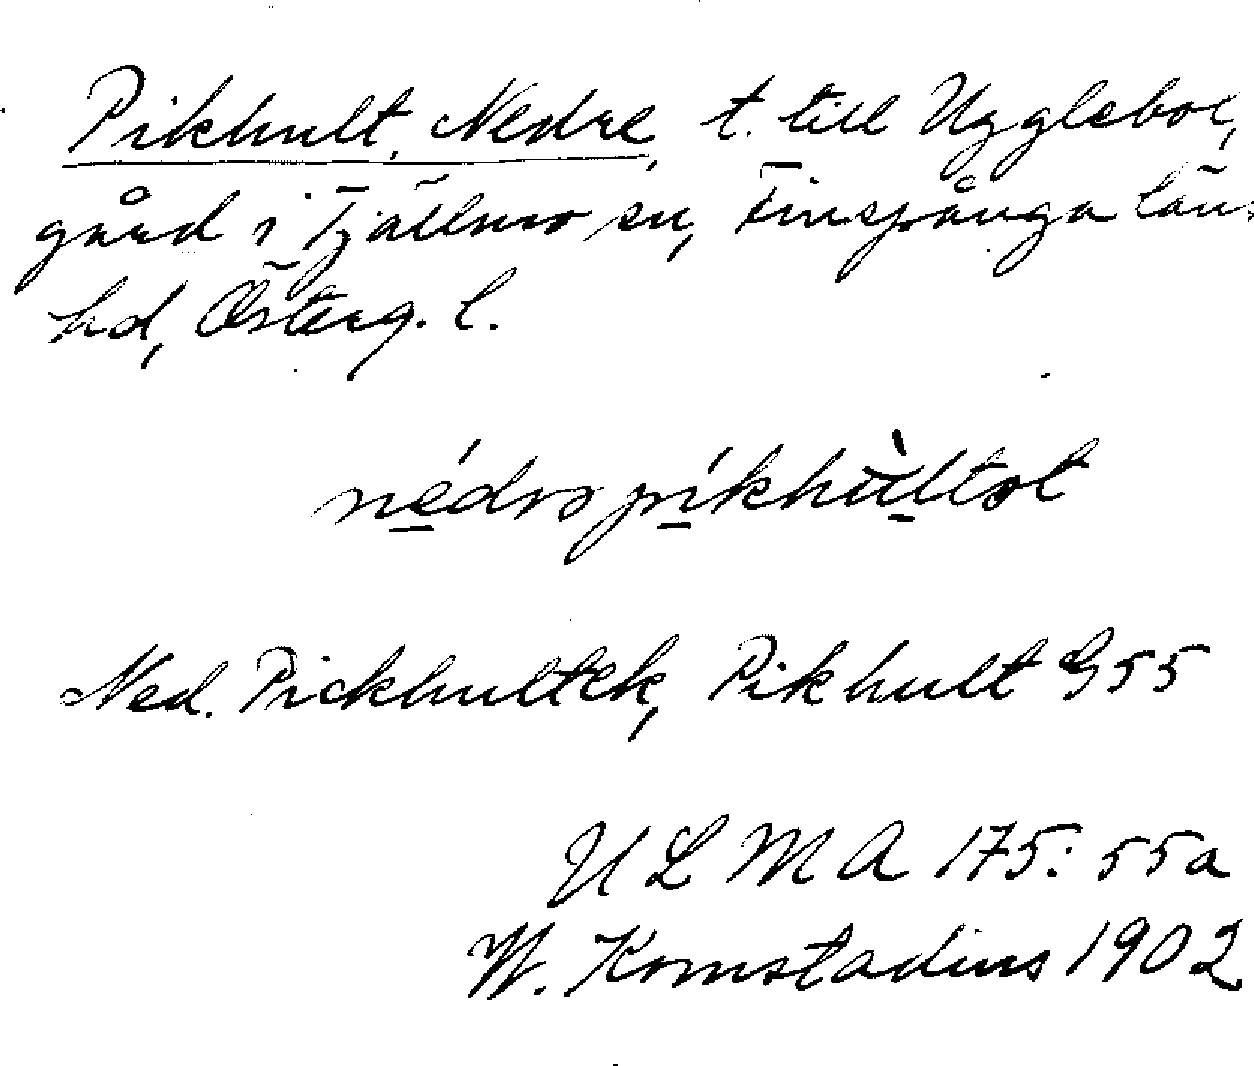 Pikhult, Nedre, t. till Ugglebol,
gård i Tjällmo sn, Finspånga läns
hd, Österg. l.
nédrɔ píkhùltət
Ned. Pickhultek, Pikhult G 55
ULMA 175: 55a
W. Komstadius 1902